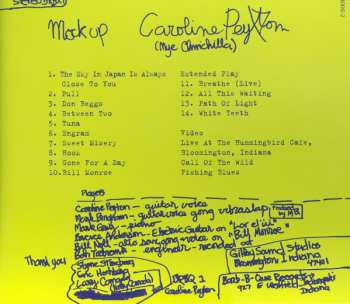 Mock up Caroline Peyton
(Mye Chinchilla)
1. The Sky In Japan Is Always
Close To You
2. Pull
3. Don Beggs
4. Between Two
5. Tuna
6. Engram
7. Sweet Misery
8. Hook
9. Gone For A Day
10. Bill Monroe
Extended Play
11. Breathe (Live)
12. All This Waiting
13. Path Of Light
14. White Teeth
Video
Live At The Hummingbird Cafe,
Bloomington, Indiana
Call Of The Wild
Fishing Blues
Players
Caroline Peyton - guitar voice
Mark Bingham - guitar voice gong vibraslap
Produced by MB
Mark Gray - piano
Bruce Anderson - Electric Guitar on "Lor el ii"
Bill Noll - alto sax gong voice on "Bill Monroe"
Bob - engineer - recorded at Gilfoy Sound Studios
Bloomington Indiana
47401
Thank you
Eric
Larry
BRBQ 1
Caroline Peyton
Bar-B-Q Records
Indianapolis
Indiana